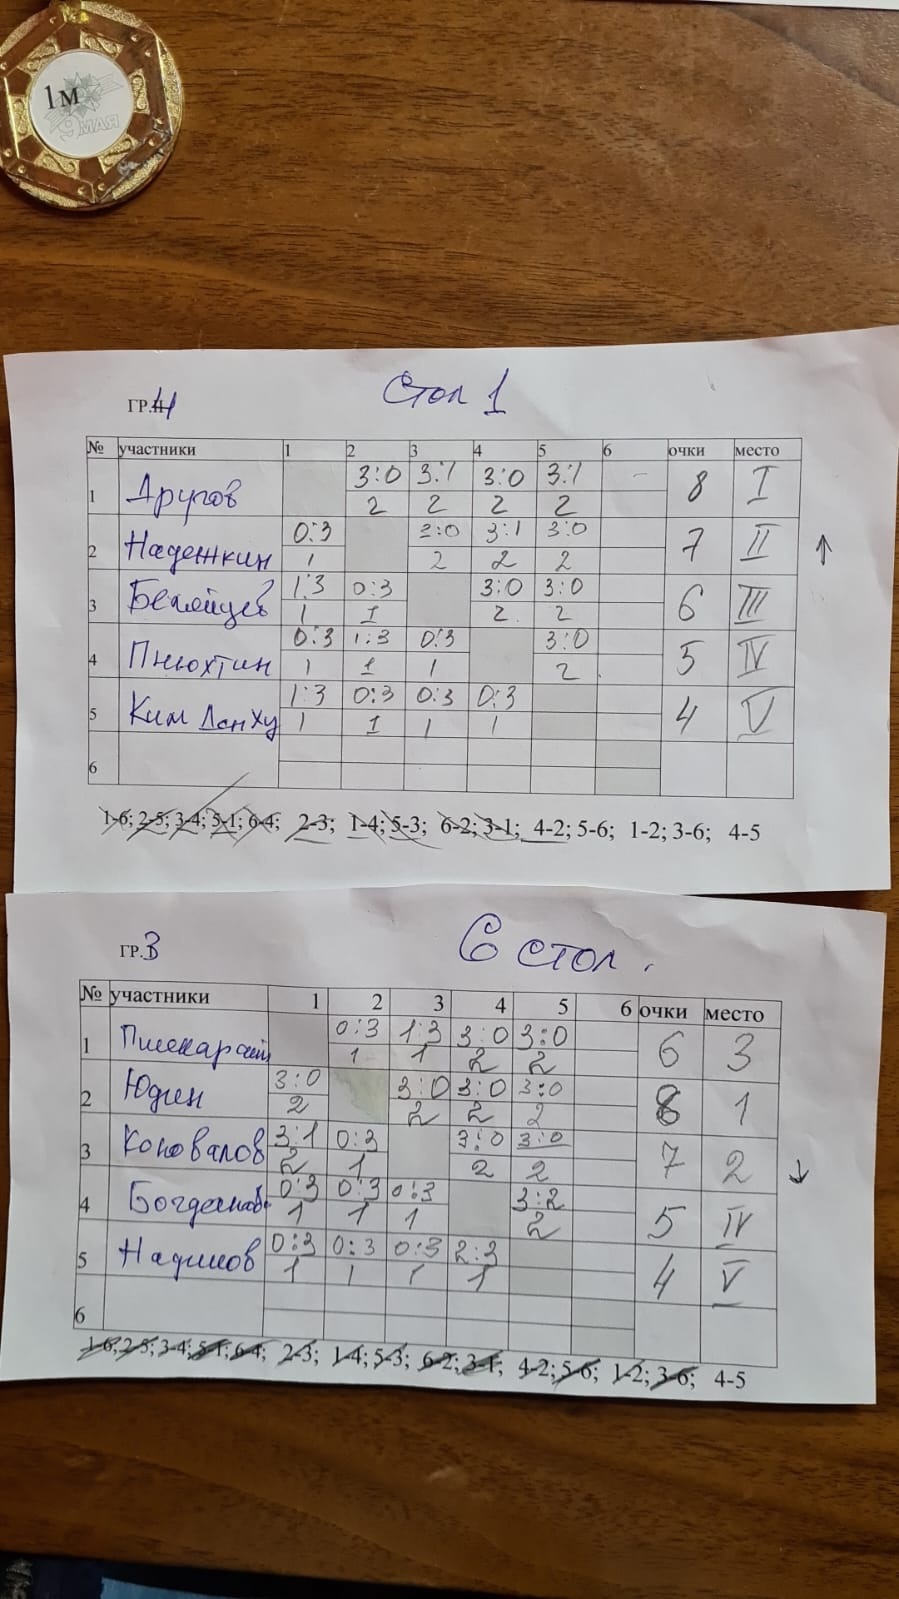 1м
9 МАЯ
Стол 1
ГР.4
№ участники 1 2 3 4 5 6 очки место
1 Другов 3:0 3:1 3:0 3:1 — 8 I
2 2 2 2
2 Надежкин 0:3 3:0 3:1 3:0 7 II ↑
1 2 2 2
3 1:3 0:3 3:0 3:0 6 III
1 1 2 2
4 Пнюхтин 0:3 1:3 0:3 3:0 5 IV
1 1 1 2
5 Ким ДонХу 1:3 0:3 0:3 0:3 4 V
1 1 1 1
6
1-6; 2-5; 3-4; 5-1; 6-4; 2-3; 1-4; 5-3; 6-2; 3-1; 4-2; 5-6; 1-2; 3-6; 4-5
6 стол.
ГР.3
№ участники 1 2 3 4 5 6 очки место
1 0:3 1:3 3:0 3:0 6 3
1 1 2 2
2 Юдин 3:0 3:0 3:0 3:0 8 1
2 2 2 2
3 Коновалов 3:1 0:3 3:0 3:0 7 2 ↓
2 1 2 2
4 0:3 0:3 0:3 3:2 5 IV
1 1 1 2
5 0:3 0:3 0:3 2:3 4 V
1 1 1 1
6
1-6; 2-5; 3-4; 5-1; 6-4; 2-3; 1-4; 5-3; 6-2; 3-1; 4-2; 5-6; 1-2; 3-6; 4-5